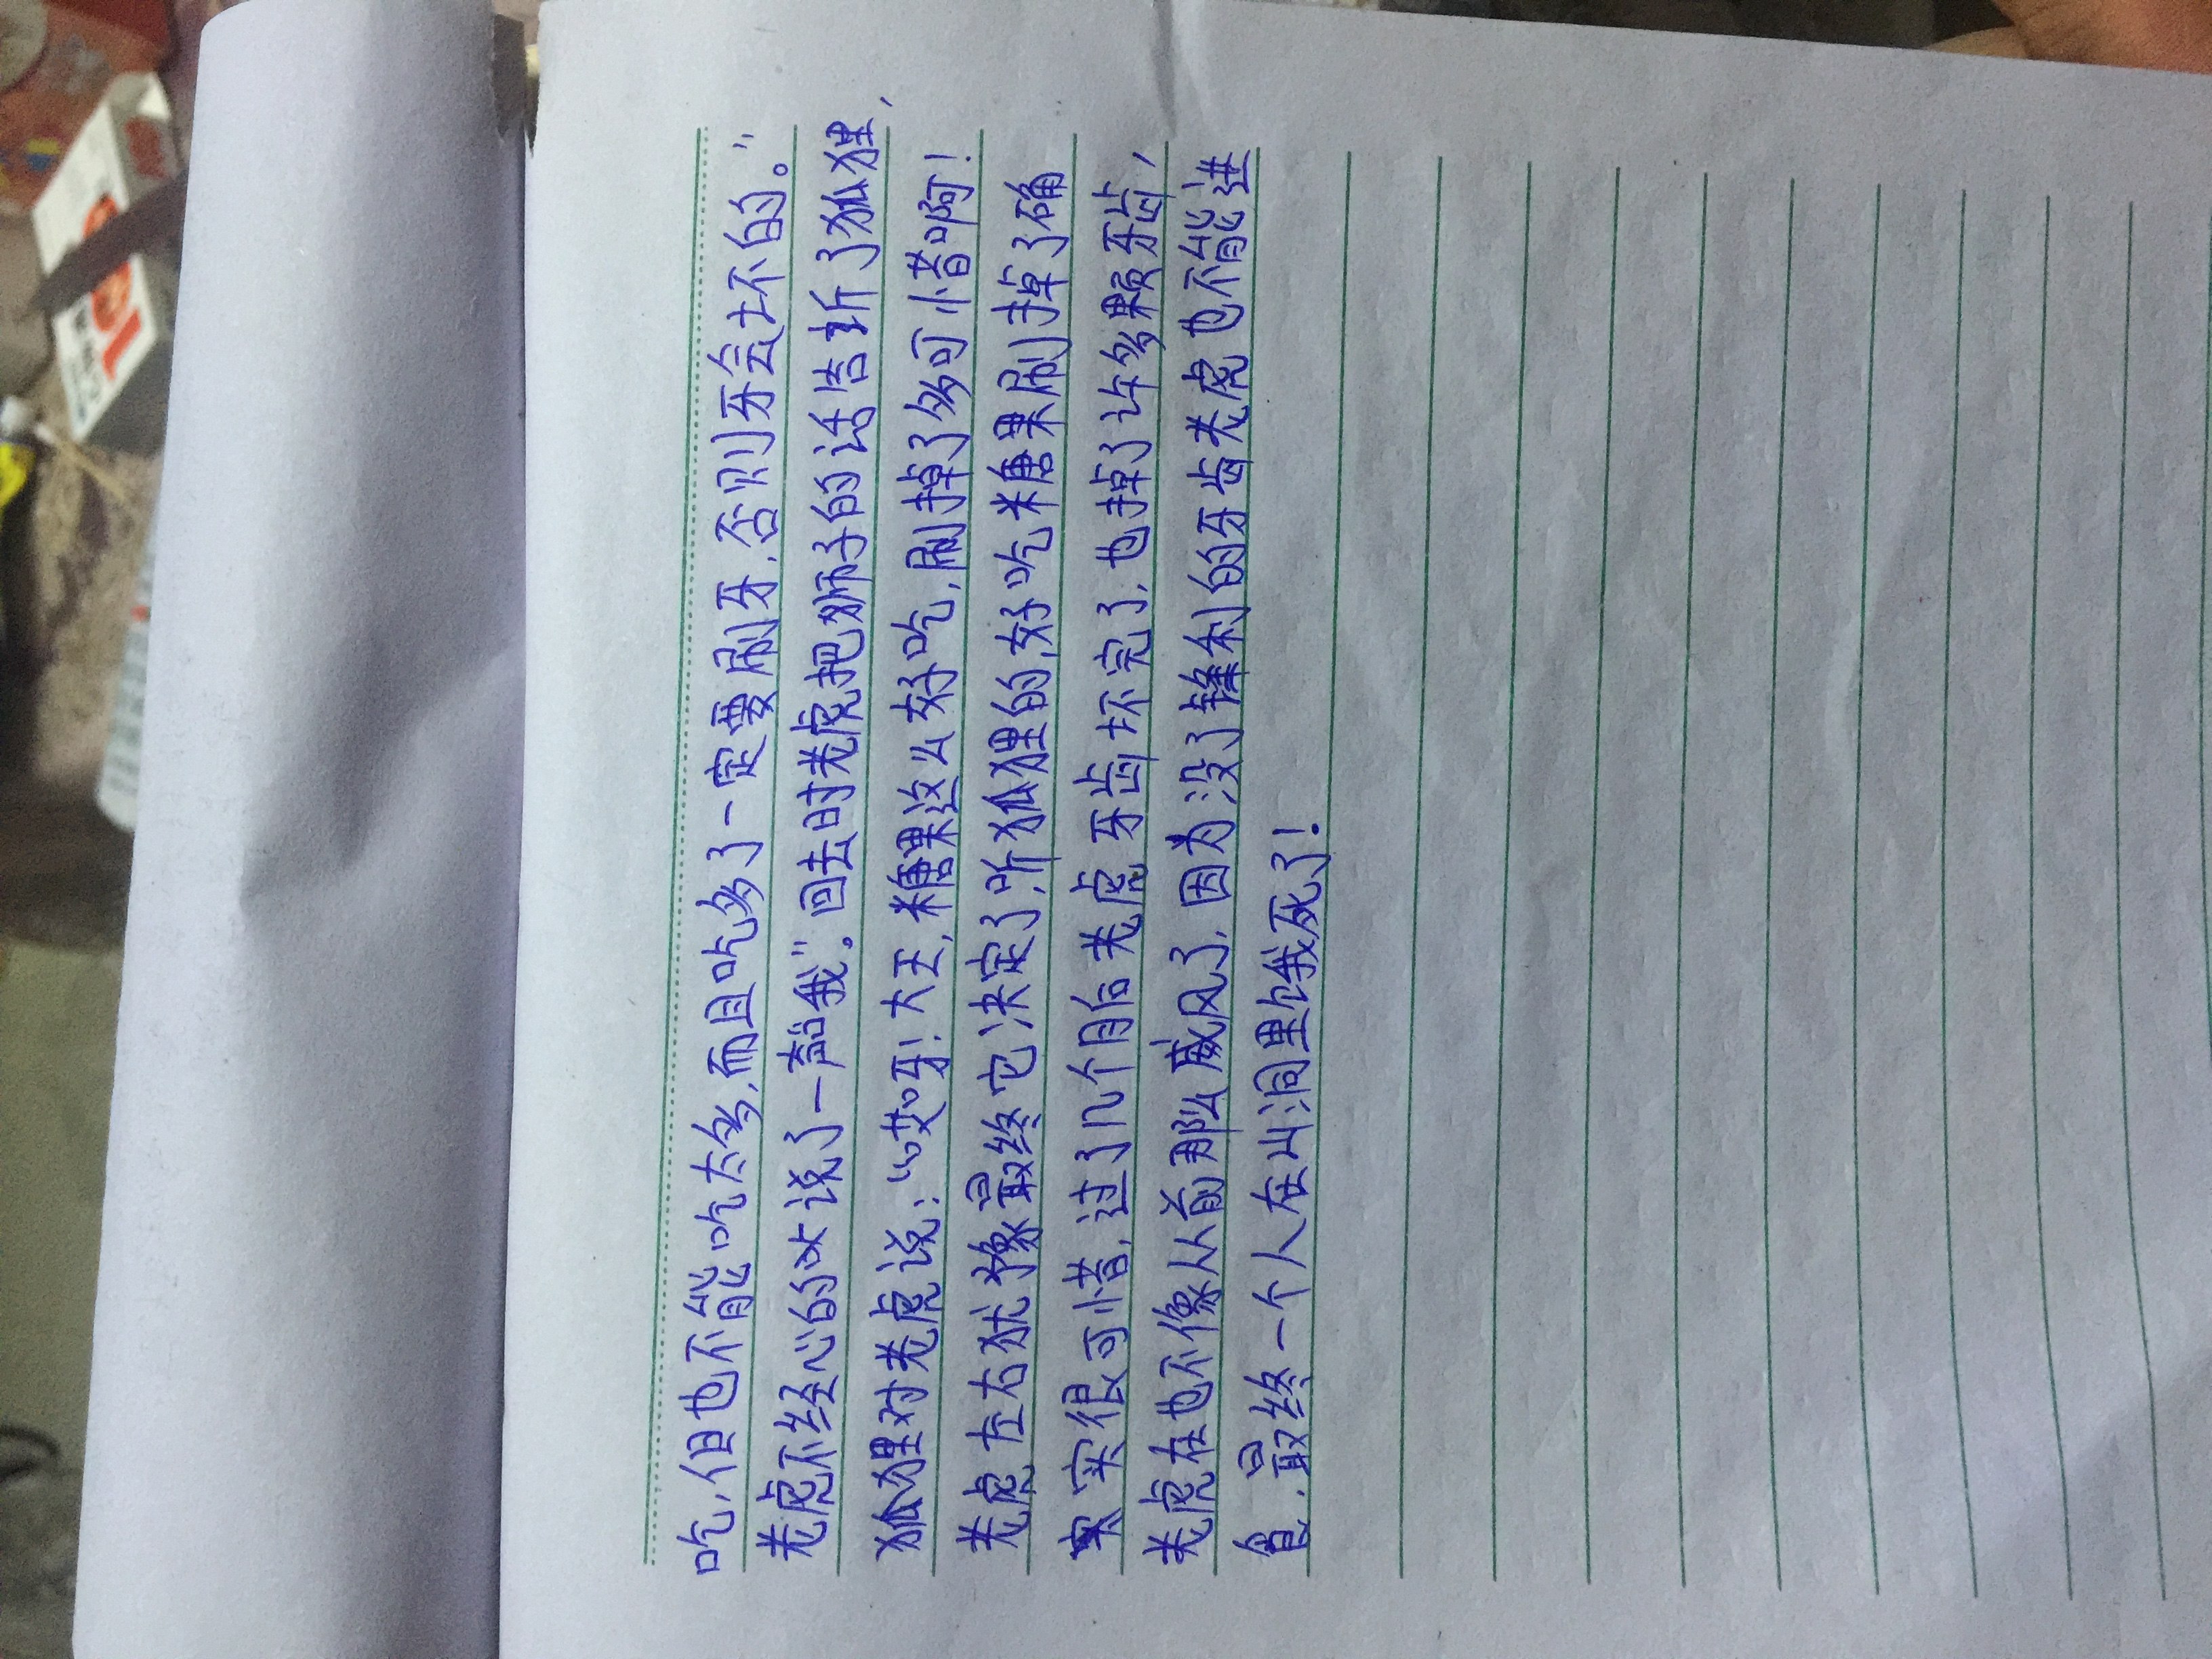 吃，但也不能吃太多，而且吃多了一定要刷牙，否则牙会坏的。"
老虎不经心的对说了一声"哦"。回去时老虎把狮子的话告诉了狐狸，
狐狸对老虎说："哎呀！大王，糖果这么好吃，刷掉了多可惜啊！
老虎左右犹豫最终它决定了，听狐狸的，好吃糖果刷掉了确
实实很可惜，过了几个月后老虎牙齿坏完了，也掉了许多颗牙齿，
老虎在也不像从前那么威风了，因为没了锋利的牙齿老虎也不能进
食，最终一个人在山洞里饿死了！